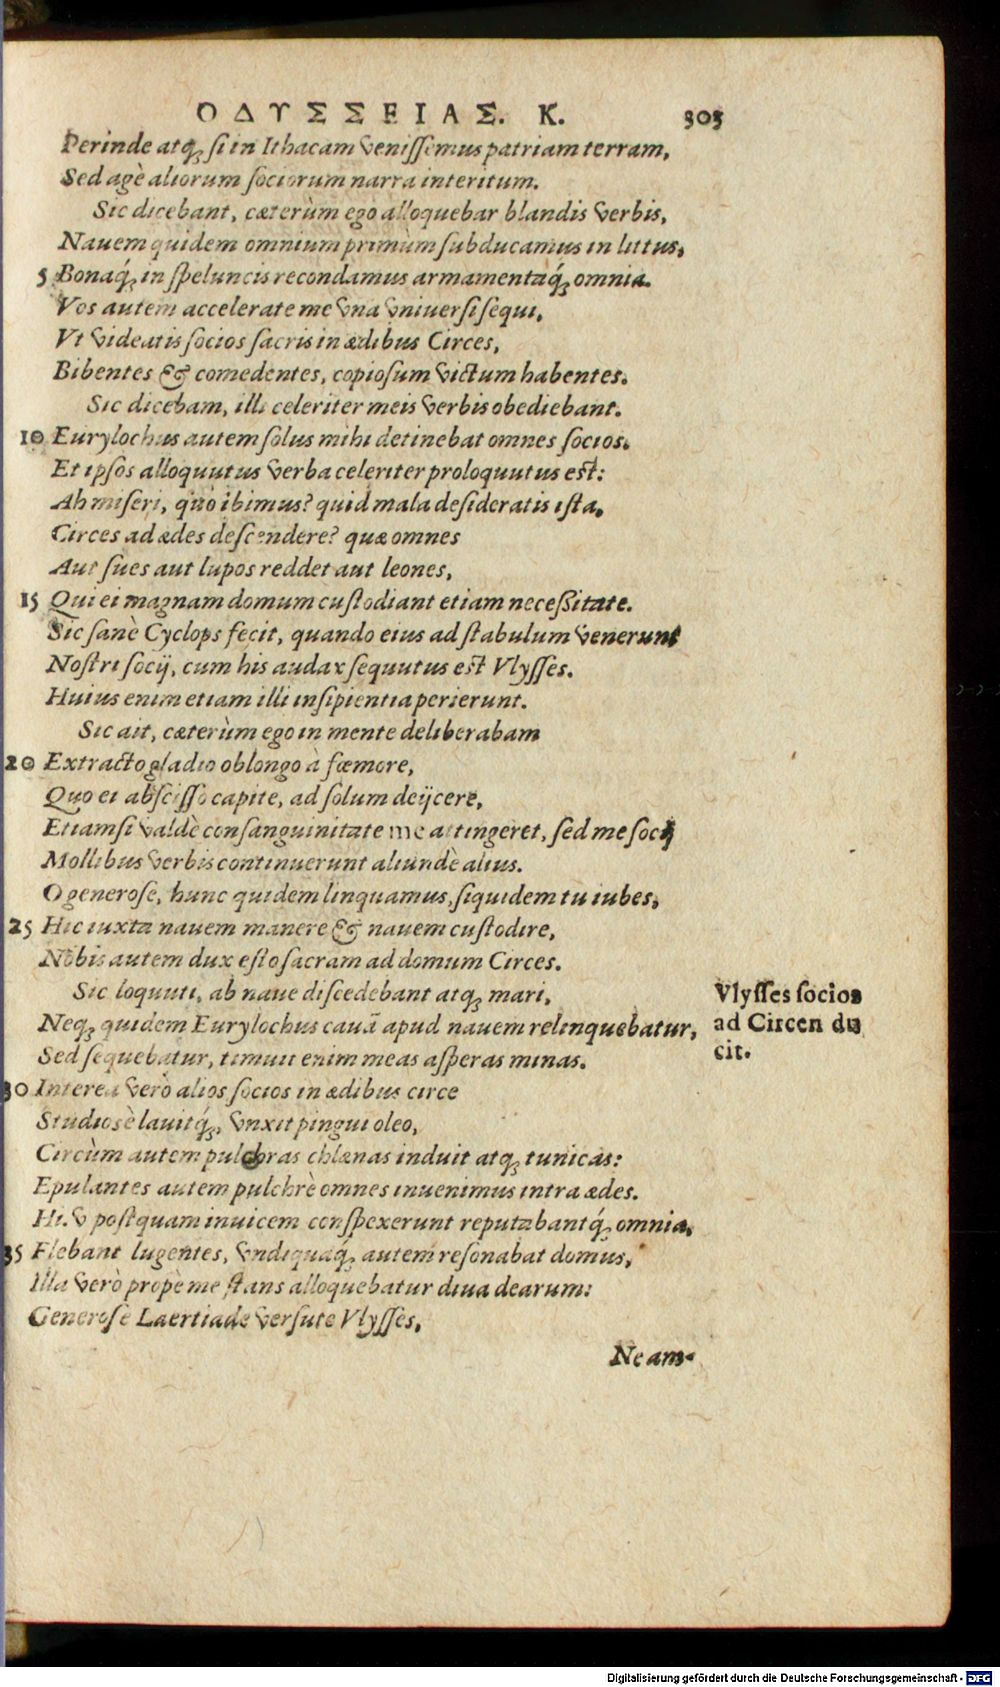 ΟΔΥΣΣΕΙΑΣ. Κ. 303
Perinde atq; si in Ithacam venissemus patriam terram,
Sed agè aliorum sociorum narra interitum.
Sic dicebant, cæterùm ego alloquebar blandis verbis,
Nauem quidem omnium primùm subducamus in littus,
5 Bonaq́; in speluncis recondamus armamentaq́; omnia.
Vos autem accelerate me vna vniuersi sequi,
Vt videatis socios sacris in ædibus Circes,
Bibentes & comedentes, copiosum victum habentes.
Sic dicebam, illi celeriter meis verbis obediebant.
10 Eurylochus autem solus mihi detinebat omnes socios.
Et ipsos alloquutus verba celeriter proloquutus est:
Ah miseri, quò ibimus? quid mala desideratis ista,
Circes ad ædes descendere? quæ omnes
Aut sues aut lupos reddet aut leones,
15 Qui ei magnam domum custodiant etiam necessitate.
Sic sanè Cyclops fecit, quando eius ad stabulum venerunt
Nostri socij, cum his audax sequutus est Vlysses.
Huius enim etiam illi insipientia perierunt.
Sic ait, cæterùm ego in mente deliberabam
20 Extracto gladio oblongo à fœmore,
Quo ei abscisso capite, ad solum deijcere,
Etiamsi valdè consanguinitate me attingeret, sed me socij
Mollibus verbis continuerunt aliundè alius.
O generose, hunc quidem linquamus, siquidem tu iubes,
25 Hic iuxta nauem manere & nauem custodire,
Nobis autem dux esto sacram ad domum Circes.
Sic loquuti, ab naue discedebant atq; mari,
Neq; quidem Eurylochus cauā apud nauem relinquebatur,
Sed sequebatur, timuit enim meas asperas minas.
30 Interea verò alios socios in ædibus circe
Studiosè lauitq́;, vnxit pingui oleo,
Circùm autem pulchras chlænas induit atq; tunicas:
Epulantes autem pulchrè omnes inuenimus intra ædes.
Hi. v postquam inuicem conspexerunt reputabantq́; omnia,
35 Flebant lugentes, vndiquaq́; autem resonabat domus,
Illa verò propè me stans alloquebatur diua dearum:
Generose Laertiade versute Vlysses,
Ne am-
Vlysses socios
ad Circen du
cit.
Digitalisierung gefördert durch die Deutsche Forschungsgemeinschaft - DFG